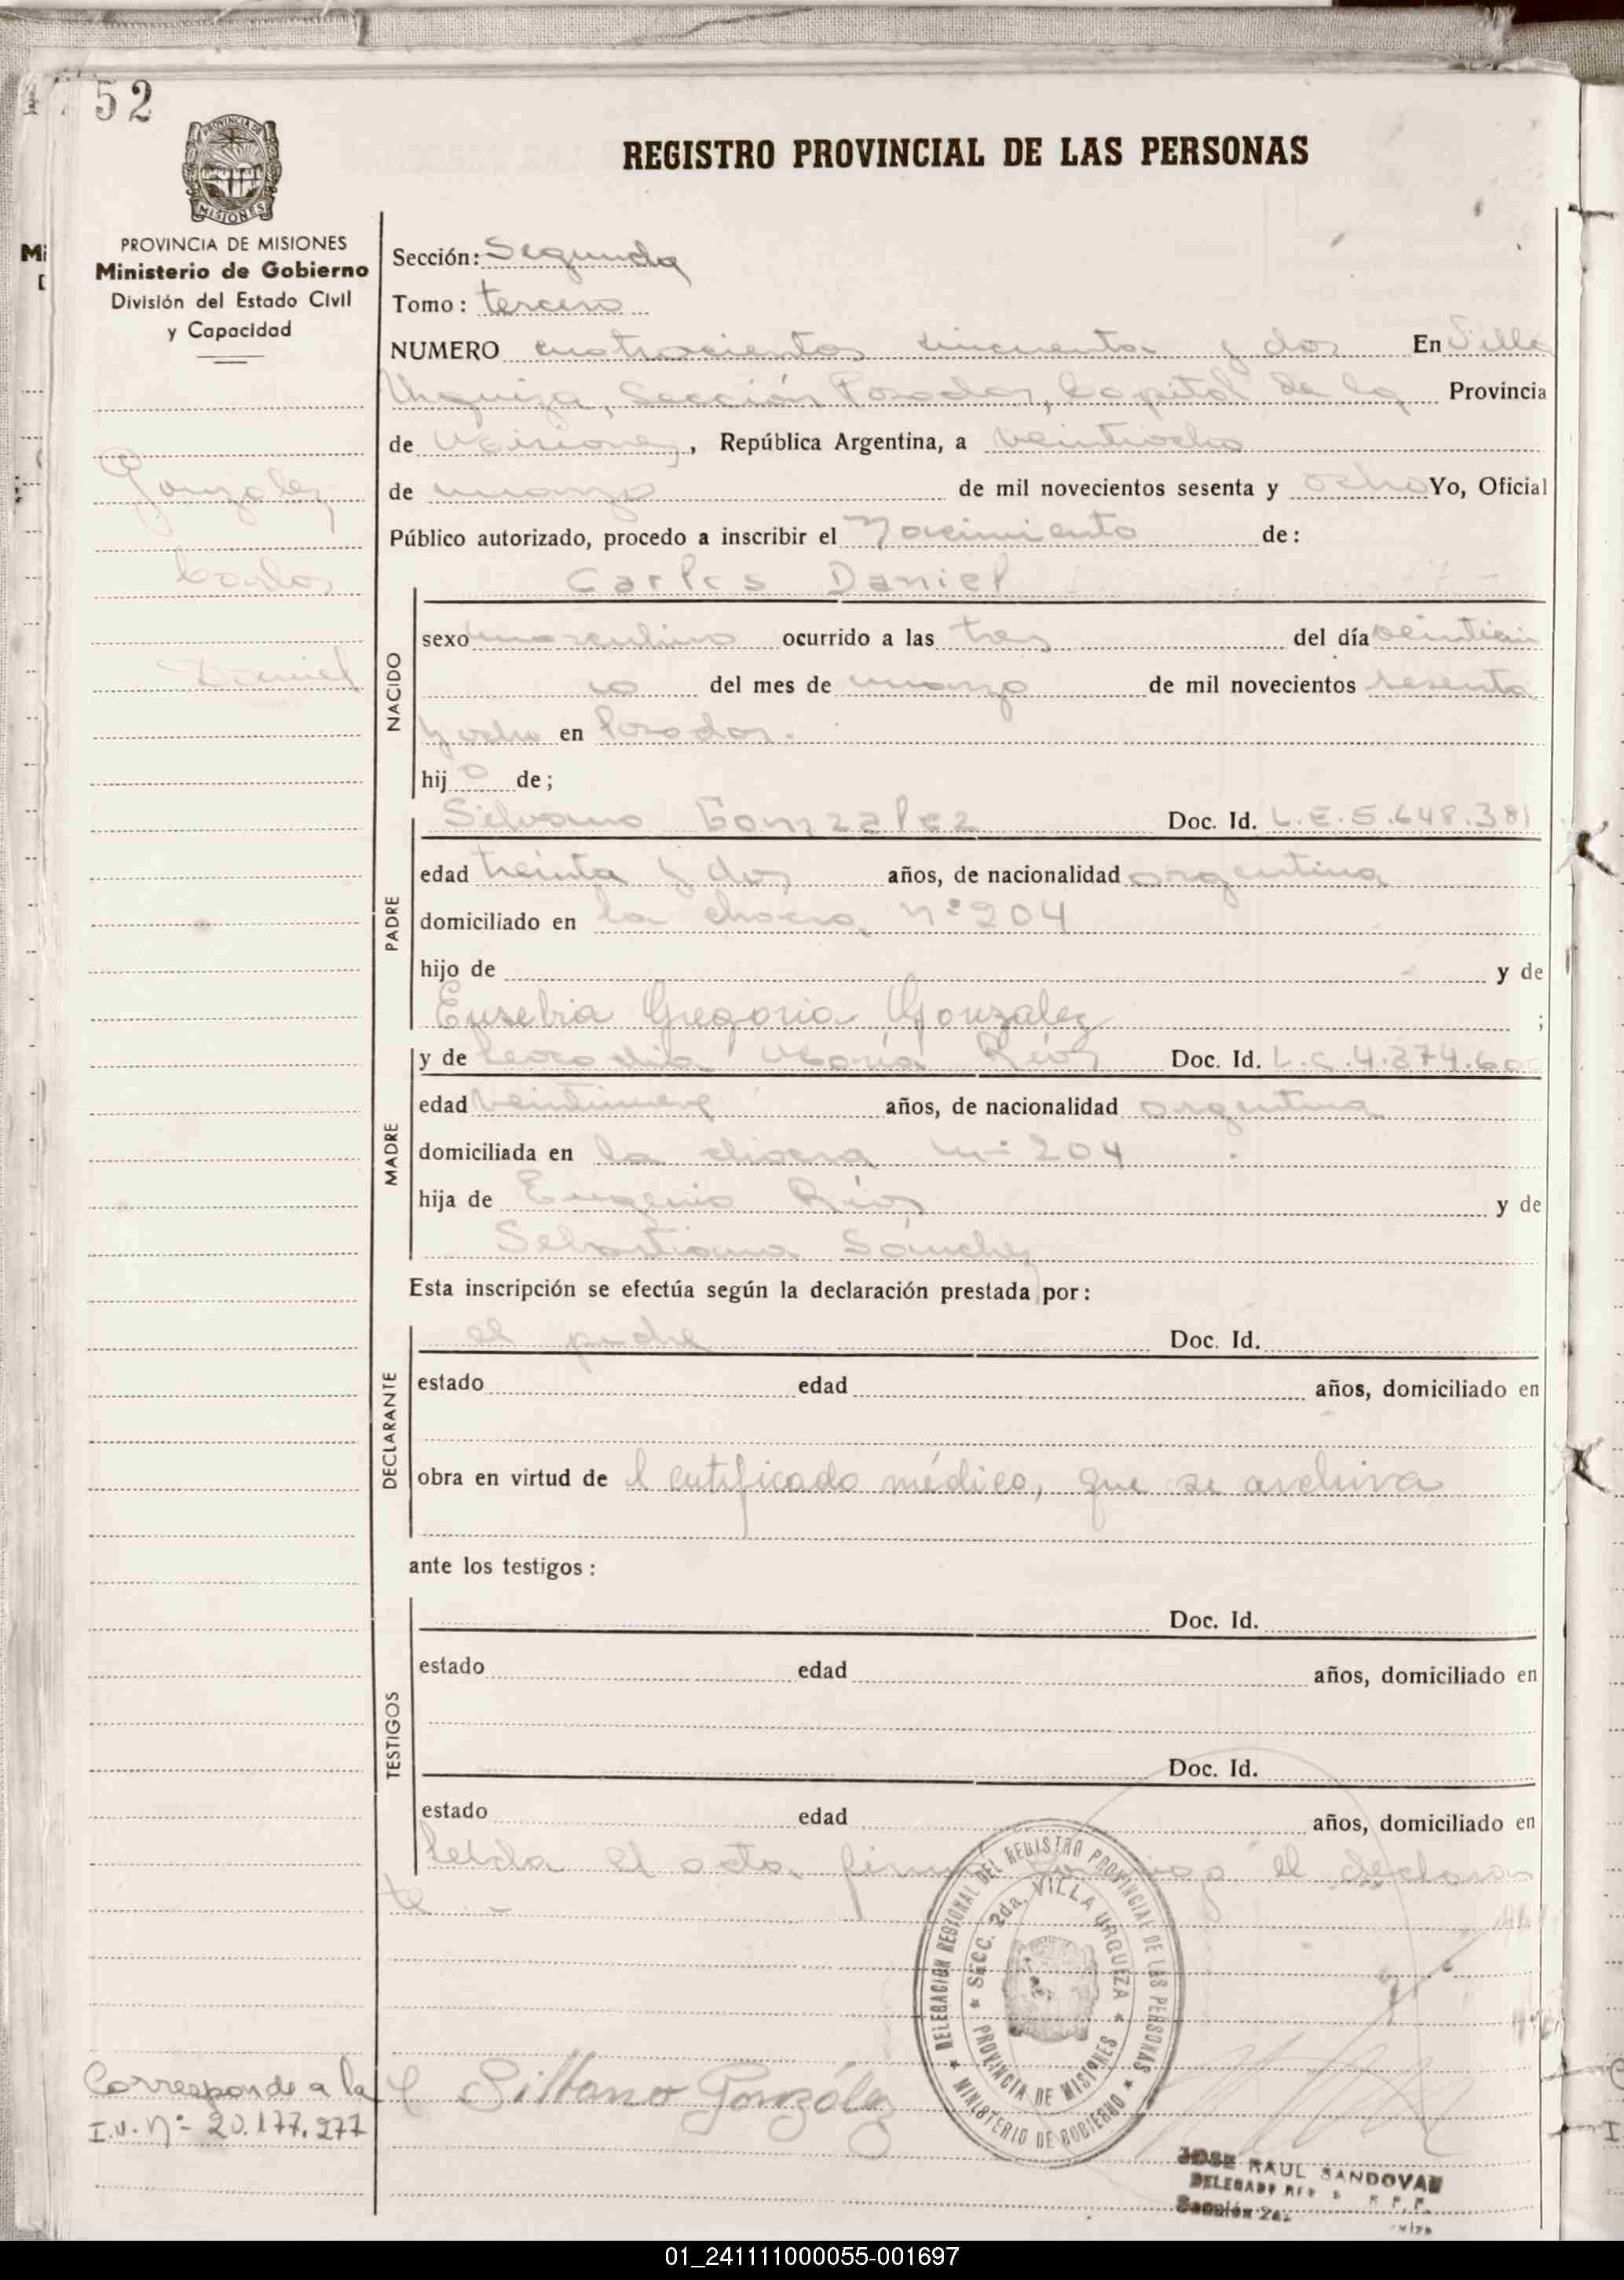 52
REGISTRO PROVINCIAL DE LAS PERSONAS
PROVINCIA DE MISIONES
Ministerio de Gobierno
División del Estado Civil
y Capacidad
Gonzalez
Carlos
Daniel
Sección: Segunda
Tomo: tercero
NUMERO cuatrocientos cincuenta y dos En Villa
Urquiza, Sección Posadas, Capital de la Provincia
de Misiones, República Argentina, a veintiocho
de marzo de mil novecientos sesenta y ocho Yo, Oficial
Público autorizado, procedo a inscribir el Nacimiento de:
NACIDO
Carlos Daniel
sexo masculino ocurrido a las tres del día veinticin
co del mes de marzo de mil novecientos sesenta
y ocho en Posadas.
hij o de;
PADRE
Silvano Gonzalez Doc. Id. L.E.5.648.381
edad treinta y dos años, de nacionalidad argentina
domiciliado en la chacra nº204
hijo de y de
Eusebia Gregoria Gonzalez ;
MADRE
y de Leocadia María Ríos Doc. Id. L.C.4.274.60
edad veintinueve años, de nacionalidad argentina
domiciliada en la chacra nº 204
hija de Eugenio Ríos y de
Sebastiana Sánchez
Esta inscripción se efectúa según la declaración prestada por:
DECLARANTE
el padre Doc. Id.
estado edad años, domiciliado en
obra en virtud de l certificado médico, que se archiva
ante los testigos:
TESTIGOS
Doc. Id.
estado edad años, domiciliado en
Doc. Id.
estado edad años, domiciliado en
Leída el acta, firma conmigo el declaran
te.-
DELEGACION REGIONAL DEL REGISTRO PROVINCIAL DE LAS PERSONAS
SECC. 2da. VILLA URQUIZA
PROVINCIA DE MISIONES
MINISTERIO DE GOBIERNO
Corresponde a la
I.U. Nº 20.177.277
Silbano Gonzólez
JOSE RAUL SANDOVAL
DELEGADO
Sección 2a.
01_241111000055-001697